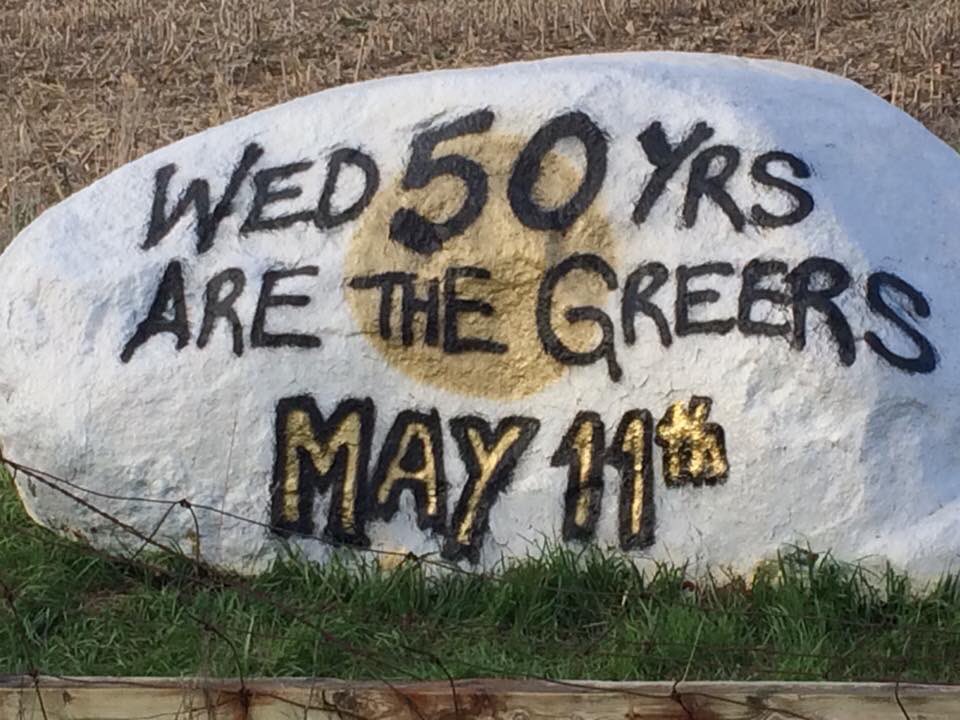 WED 50 YRS
ARE THE GREERS
MAY 11th